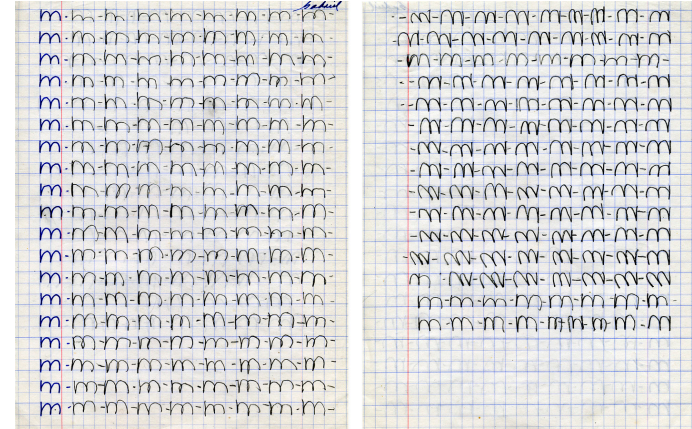 Gabriel
m - m - m - m - m - m - m - m - m -
m - m - m - m - m - m - m - m - m -
m - m - m - m - m - m - m - m - m -
m - m - m - m - m - m - m - m - m -
m - m - m - m - m - m - m - m - m -
m - m - m - m - m - m - m - m - m -
m - m - m - m - m - m - m - m - m -
m - m - m - m - m - m - m - m - m -
m - m - m - m - m - m - m - m - m -
m - m - m - m - m - m - m - m - m -
m - m - m - m - m - m - m - m - m -
m - m - m - m - m - m - m - m - m -
m - m - m - m - m - m - m - m - m -
m - m - m - m - m - m - m - m - m -
m - m - m - m - m - m - m - m - m -
m - m - m - m - m - m - m - m - m -
m - m - m - m - m - m - m - m - m -
m - m - m - m - m - m - m - m - m -
m - m - m - m - m - m - m - m - m -
- m - m - m - m - m - m - m - m - m
- m - m - m - m - m - m - m - m - m
- m - m - m - m - m - m - m - m -
- m - m - m - m - m - m - m - m
- m - m - m - m - m - m - m - m
- m - m - m - m - m - m - m - m
- m - m - m - m - m - m - m - m
- m - m - m - m - m - m - m - m
- m - m - m - m - m - m - m - m
- m - m - m - m - m - m - m - m
- m - m - m - m - m - m - m - m
- m - m - m - m - m - m - m - m
m - m - m - m - m - m - m - m
m - m - m - m - m - m - m - m -
m - m - m - m - m - m - m - m - m